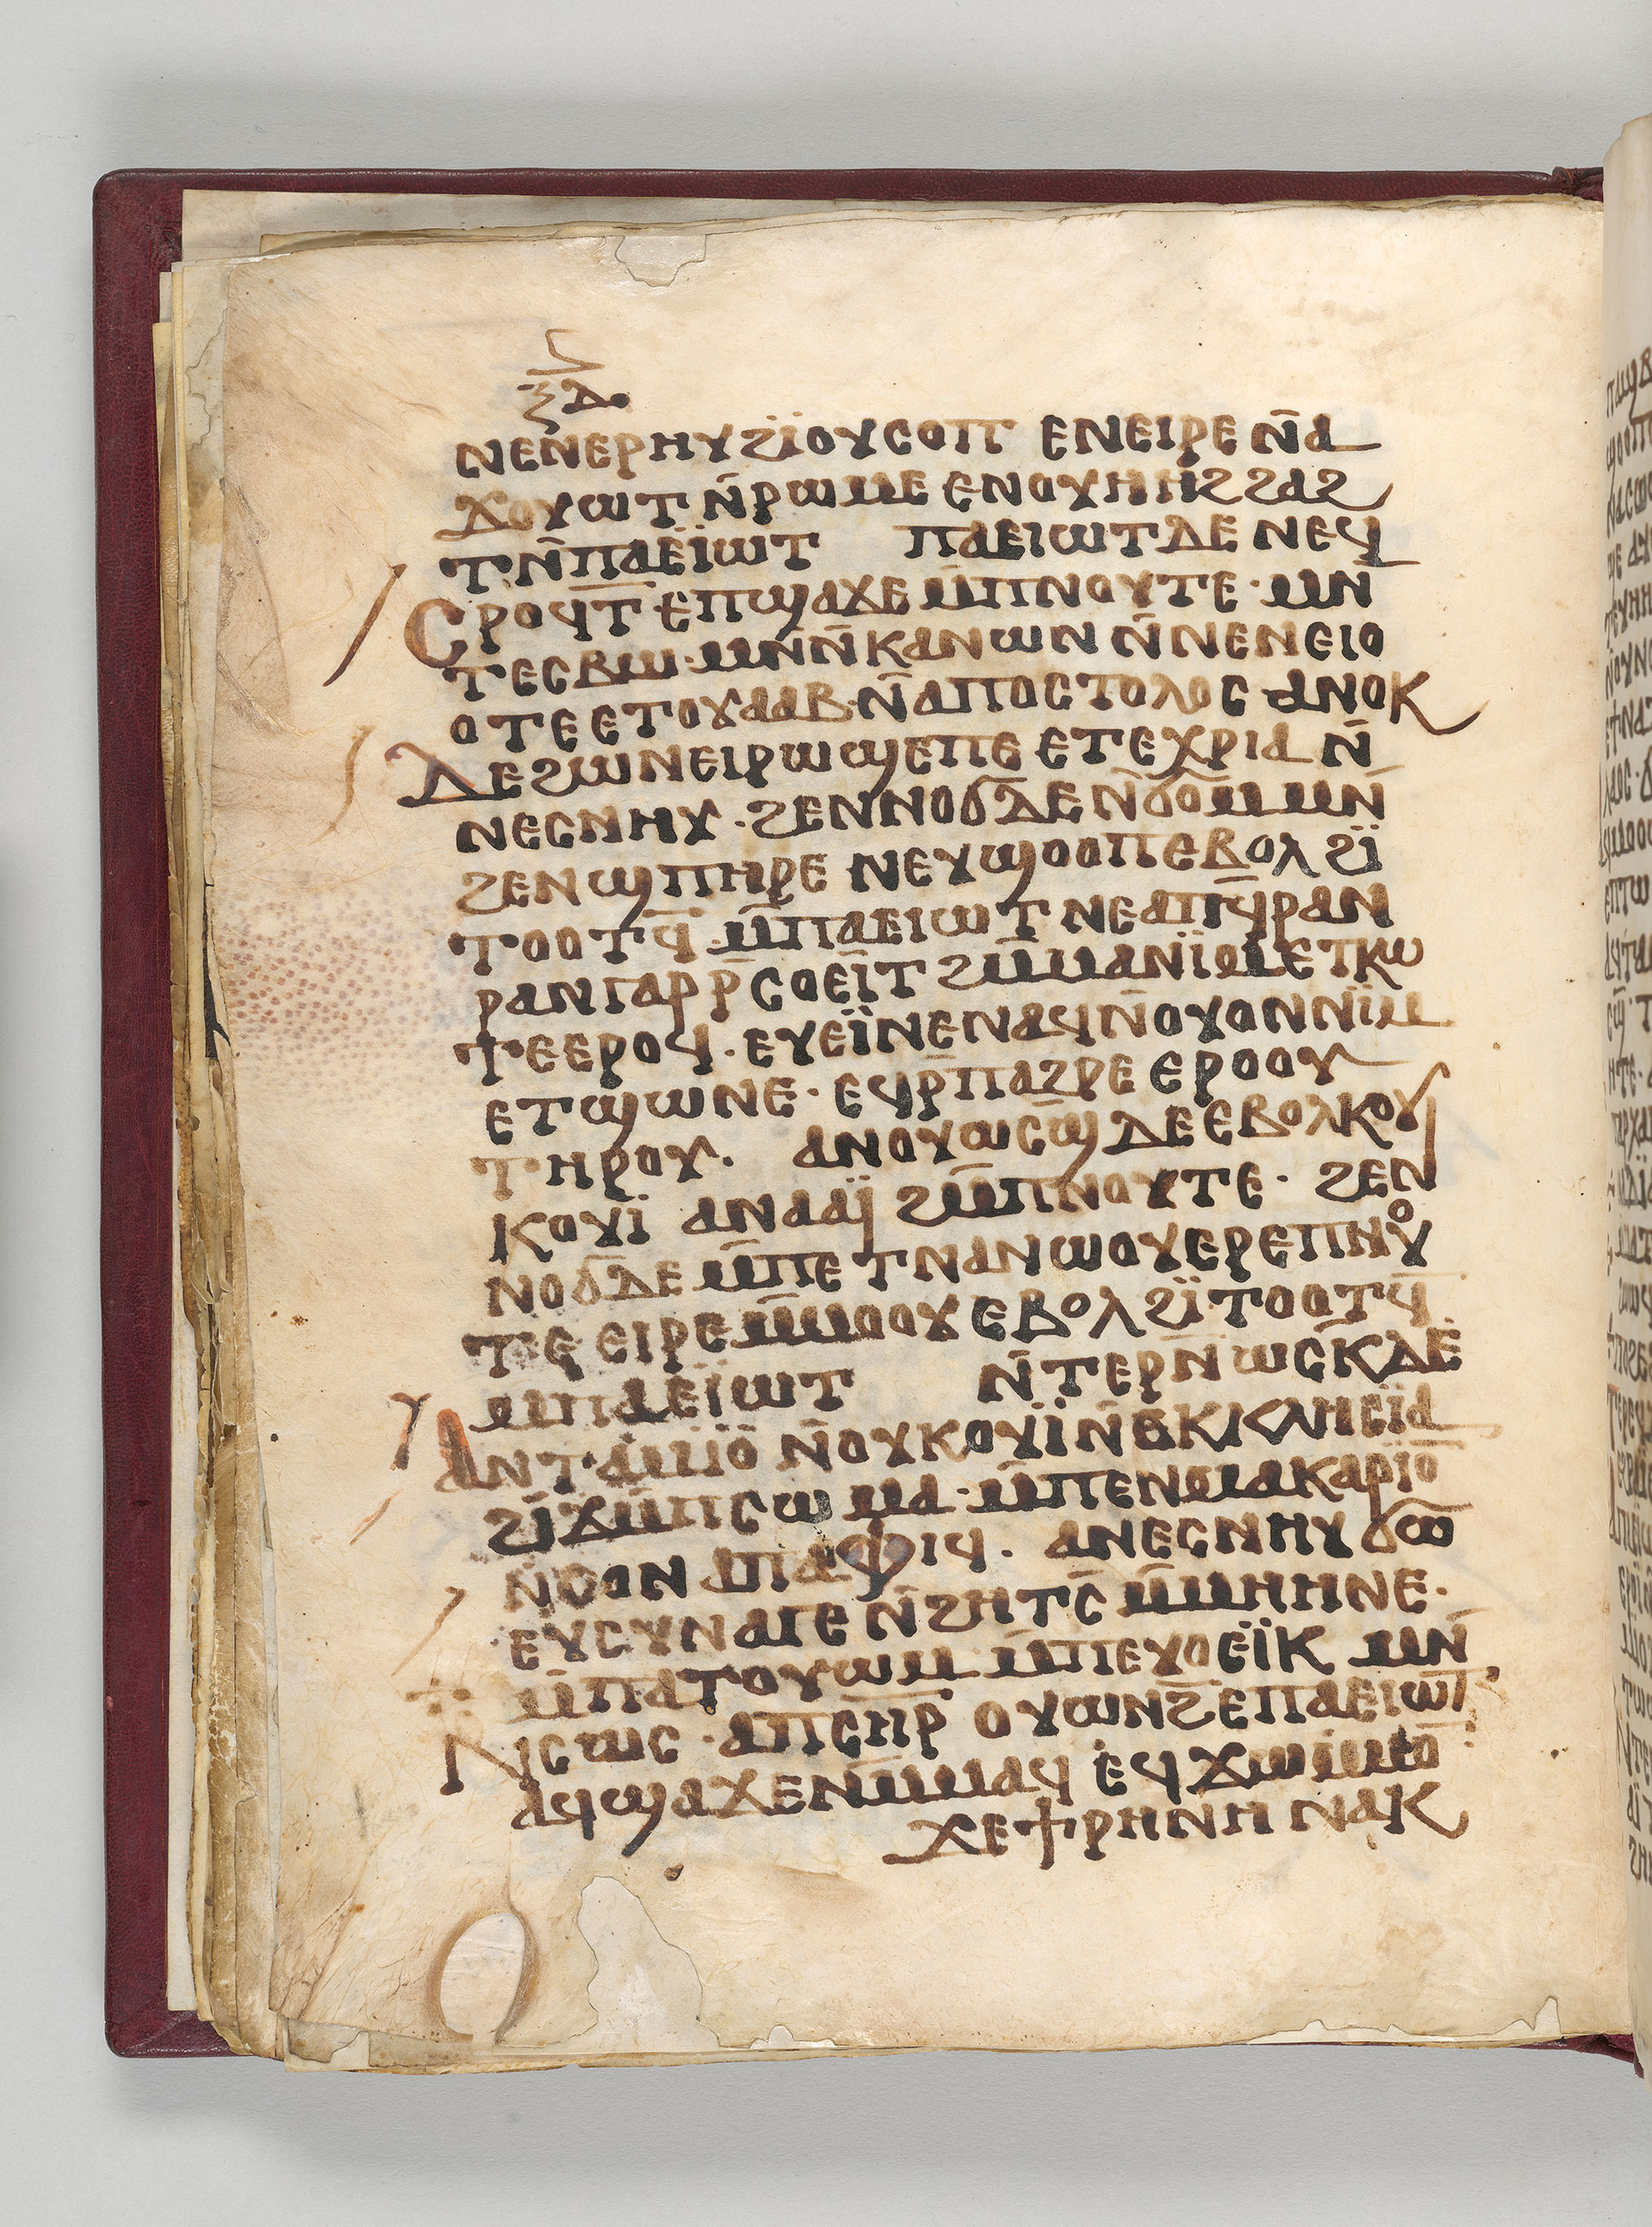 ⲝⲇ
ⲛⲉⲛⲉⲣⲏⲩ ϩⲓ̈ⲟⲩⲥⲟⲡ ⲉⲛⲉⲓⲣⲉ ⲛ̄ⲁ
ϫⲟⲩⲱⲧ ⲛ̄ⲣⲱⲙⲉ ⲉⲛⲟⲩⲏⲏϩ ϩⲁϩ
ⲧⲙ̄ⲡⲁⲉⲓ̈ⲱⲧ ⲡⲁⲉⲓⲱⲧ ⲇⲉ ⲛⲉϥ
ⲥⲣⲟϥⲧ̄ ⲉⲡϣⲁϫⲉ ⲙ̄ⲡⲛⲟⲩⲧⲉ· ⲙⲛ
ⲧⲉⲥⲃⲱ· ⲙⲛ̄ⲛ̄ⲕⲁⲛⲱⲛ ⲛ̄ⲛⲉⲛⲉⲓⲟ
ⲟⲧⲉ ⲉⲧⲟⲩⲁⲁⲃ· ⲛ̄ⲁⲡⲟⲥⲧⲟⲗⲟⲥ ⲁⲛⲟⲕ
ⲇⲉ ϩⲱ ⲛⲉⲓⲣⲱϣⲉ ⲡⲉ ⲉⲧⲉⲭⲣⲓⲁ ⲛ̄
ⲛⲉⲥⲛⲏⲩ· ϩⲉⲛⲛⲟϭ ⲇⲉ ⲛ̄ϭⲟⲙ ⲙⲛ̄
ϩⲉⲛϣⲡⲏⲣⲉ ⲛⲉⲩϣⲟⲟⲡ ⲉⲃⲟⲗ ϩⲓ̈
ⲧⲟⲟⲧϥ̄ ⲙ̄ⲡⲁⲉⲓⲱⲧ ⲛⲉⲁⲡϥ̄ⲣⲁⲛ
ⲣⲁⲛ ⲅⲁⲣ ⲣ̄ⲥⲟⲉⲓ̈ⲧ ϩⲙ̄ⲙⲁ ⲛⲓ̈ⲙ ⲉⲧⲕⲱ
ⲧⲉ ⲉⲣⲟϥ· ⲉⲩⲉⲓ̈ⲛⲉ ⲛⲁϥ ⲛ̄ⲟⲩⲟⲛ ⲛⲓ̈ⲙ
ⲉⲧϣⲱⲛⲉ· ⲉϥⲣ̄ⲡⲁϩⲣⲉ ⲉⲣⲟⲟⲩ
ⲧⲏⲣⲟⲩ· ⲁⲛⲟⲩⲱⲥϣ̄ ⲇⲉ ⲉⲃⲟⲗ ⲕⲟⲩ
ⲕⲟⲩⲓ̈ ⲁⲛⲁⲁⲓ̈ ϩⲙ̄ⲡⲛⲟⲩⲧⲉ· ϩⲉⲛ
ⲛⲟϭ ⲇⲉ ⲙ̄ⲡⲉⲧⲛⲁⲛⲱⲟⲩ ⲉⲣⲉⲡⲛⲟⲩ
ⲧⲉ ⲉⲓⲣⲉ ⲙ̄ⲙⲟⲟⲩ ⲉⲃⲟⲗ ϩⲓ̈ⲧⲟⲟⲧϥ̄
ⲙⲡⲁⲉⲓ̈ⲱⲧ ⲛ̄ⲧⲉⲣⲛ̄ⲱⲥⲕ̄ ⲇⲉ
ⲁⲛⲧⲁⲙⲓⲟ ⲛ̄ⲟⲩⲕⲟⲩⲓ̈ ⲛ̄ⲉⲕⲕⲗⲏⲉⲓ̈ⲁ
ϩⲓ̈ϫⲙ̄ⲡⲥⲱⲙⲁ· ⲙ̄ⲡⲉⲛⲙⲁⲕⲁⲣⲓⲟ̄
ⲛ̄ⲥⲟⲛ ⲁⲡⲁ ⲫⲓϥ· ⲁⲛⲉⲥⲛⲏⲩ ϭⲱ̄
ⲉⲩⲥⲩⲛⲁⲅⲉ ⲛ̄ϩⲏⲧⲥ̄ ⲙ̄ⲙⲏⲏⲛⲉ·
ⲙ̄ⲡⲁⲧⲟⲩⲱⲙ ⲙ̄ⲡⲉⲩⲟⲉⲓ̈ⲕ ⲙⲛ̄
ⲛⲥⲱⲥ· ⲁⲡⲥⲏⲣ̄ ⲟⲩⲱⲛϩ ⲉⲡⲁⲉⲓⲱⲧ
ⲁϥϣⲁϫⲉ ⲛⲙ̄ⲙⲁϥ ⲉϥϫⲱ ⲙ̄ⲙⲟ̄
ϫⲉ ϯⲣⲏⲛⲏ ⲛⲁⲕ